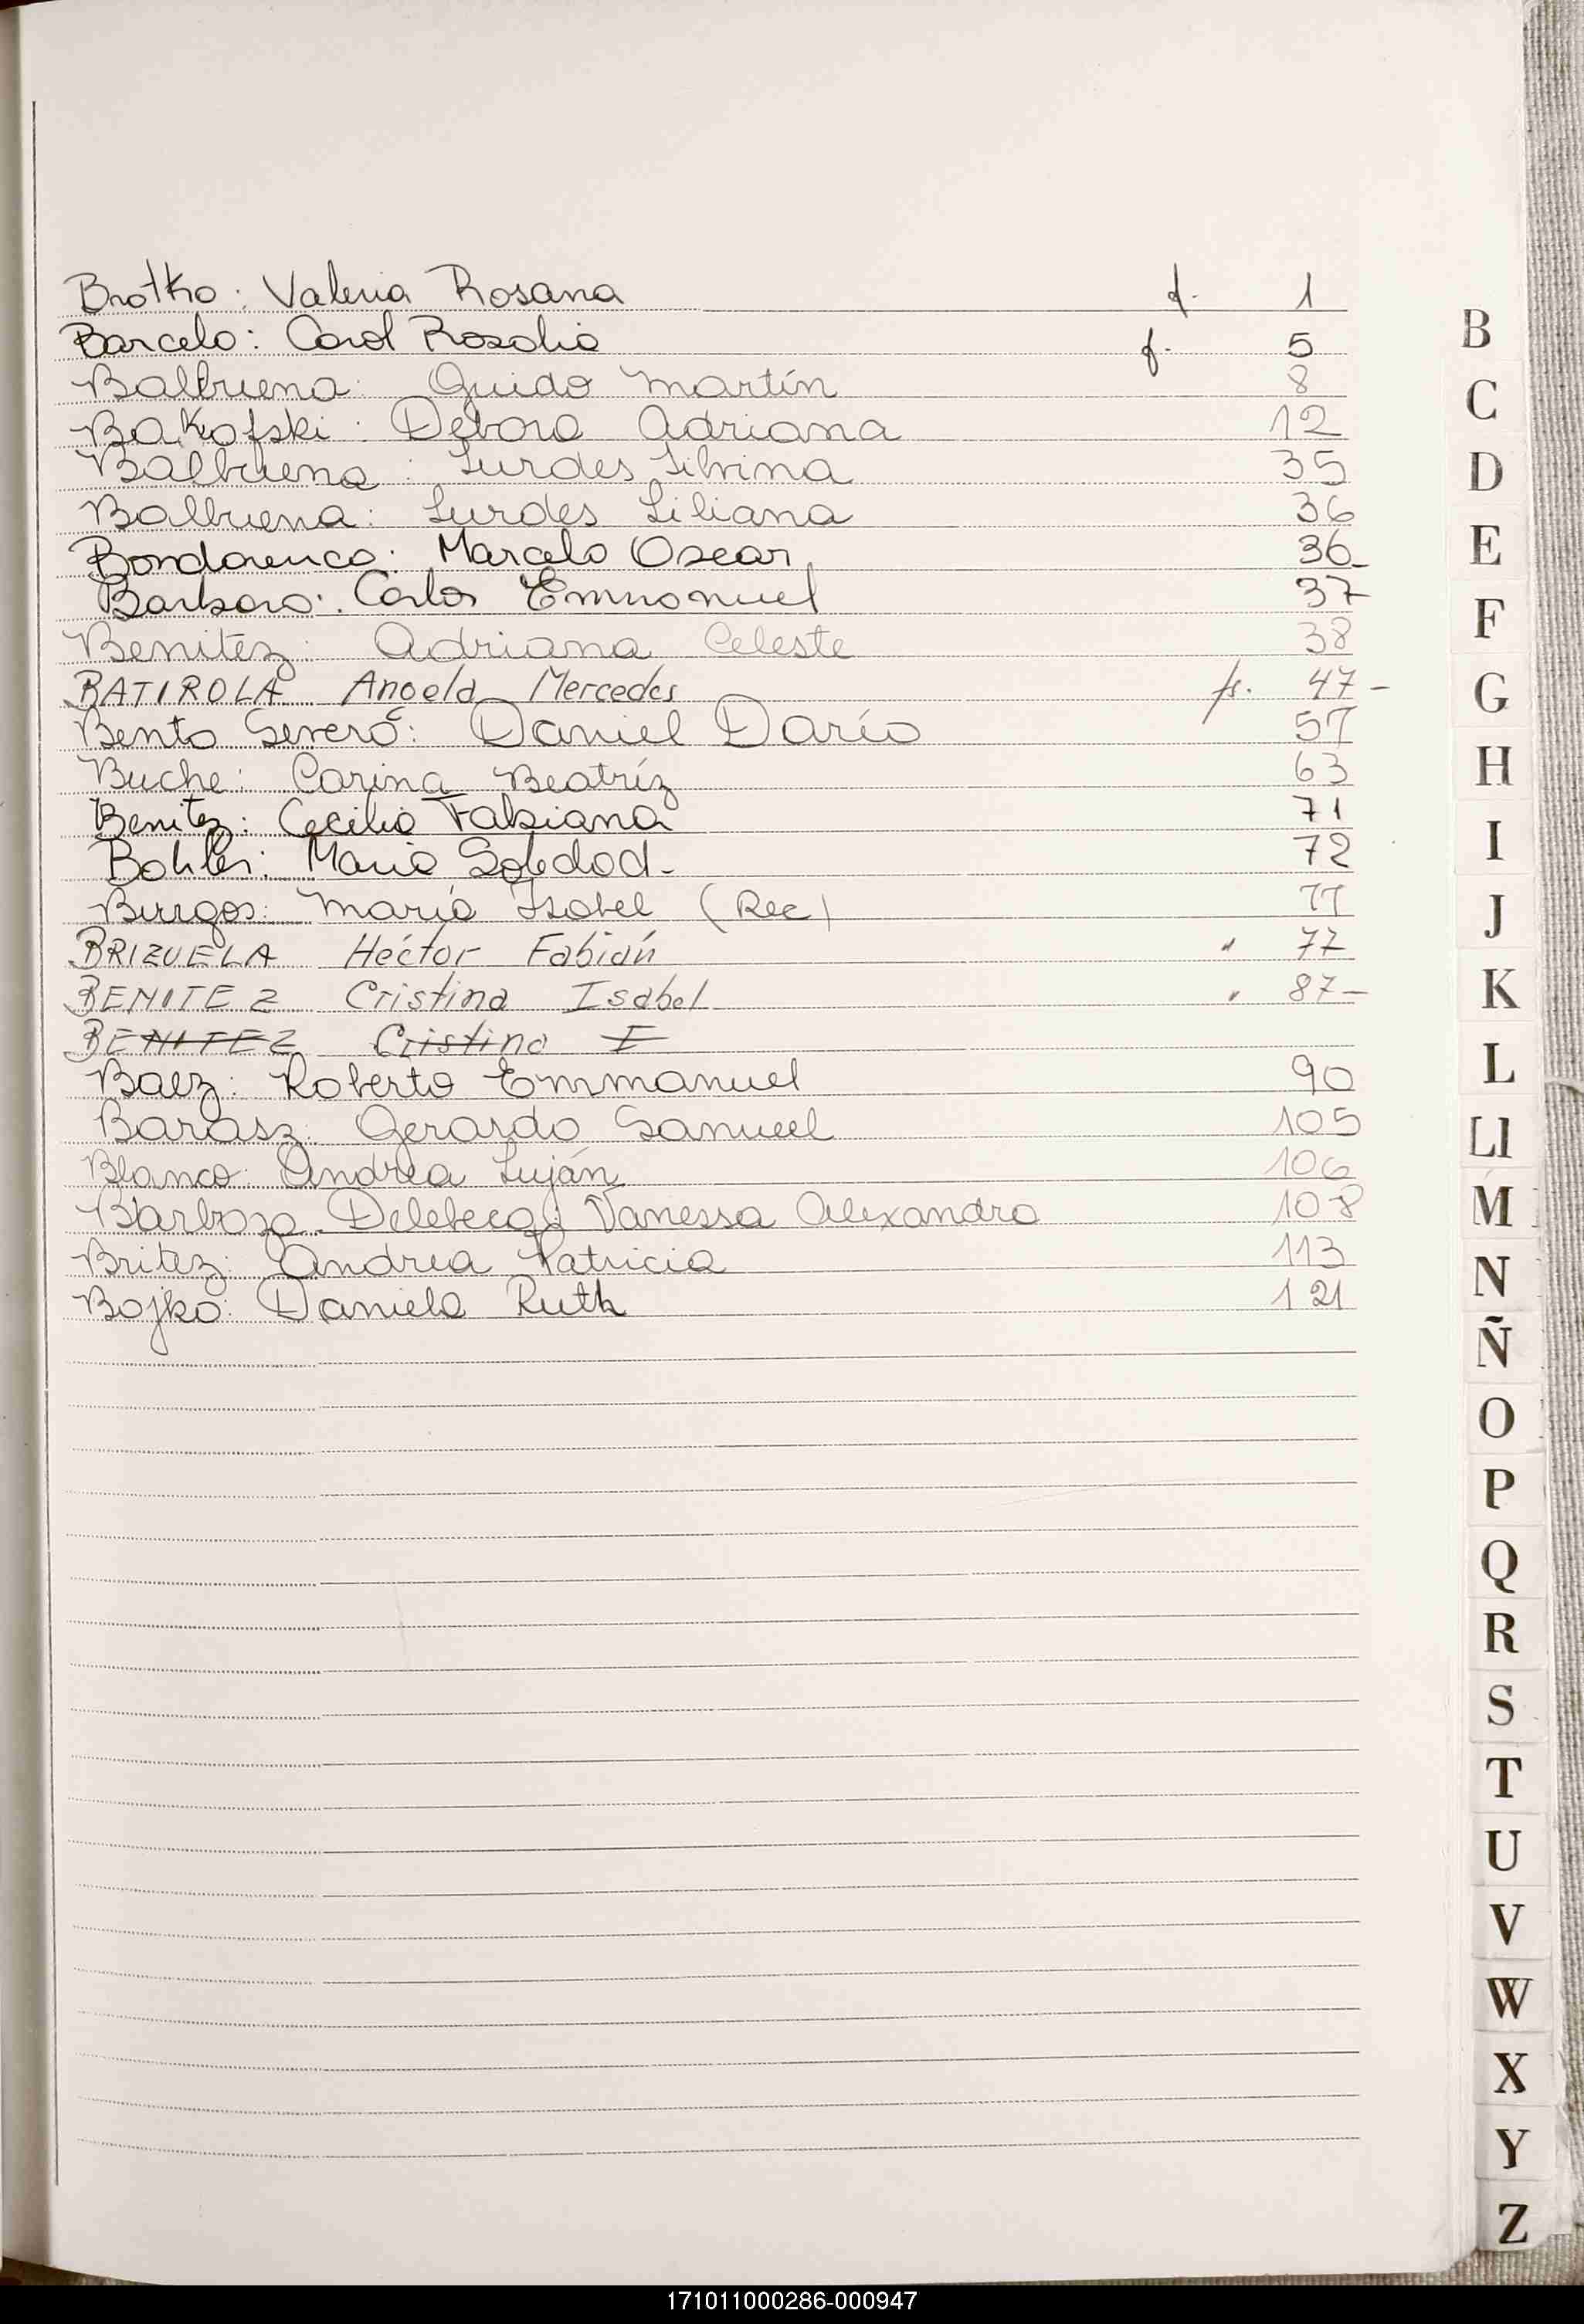 Brotko: Valeria Rosana f. 1
Barcelo: Carol Rosalia f. 5
Balbuena: Guido Martín 8
Bakofski: Debora Adriana 12
Balbuena: Lurdes Silvina 35
Balbuena: Lurdes Liliana 36
Bondarenco: Marcelo Oscar 36
Barboro: Carlos Emmanuel 37
Benitez: Adriana Celeste 38
BATIROLA Angela Mercedes fs. 47-
Bento Severo: Daniel Darío 57
Buche: Carina Beatríz 63
Benitez: Cecilia Fabiana 71
María Soledad- 72
Burgos: María Isabel (Rec) 77
BRIZUELA Héctor Fabián " 77
BENITEZ Cristina Isabel " 87-
BENITEZ Cristina I
Baez: Roberto Emmanuel 90
Barasz: Gerardo Samuel 105
Blanco: Andrea Luján 106
Barboza Delebecq: Vanessa Alexandra 108
Britez: Andrea Patricia 113
Bojko: Daniela Ruth 121
B
C
D
E
F
G
H
I
J
K
L
Ll
M
N
Ñ
O
P
Q
R
S
T
U
V
W
X
Y
Z
171011000286-000947